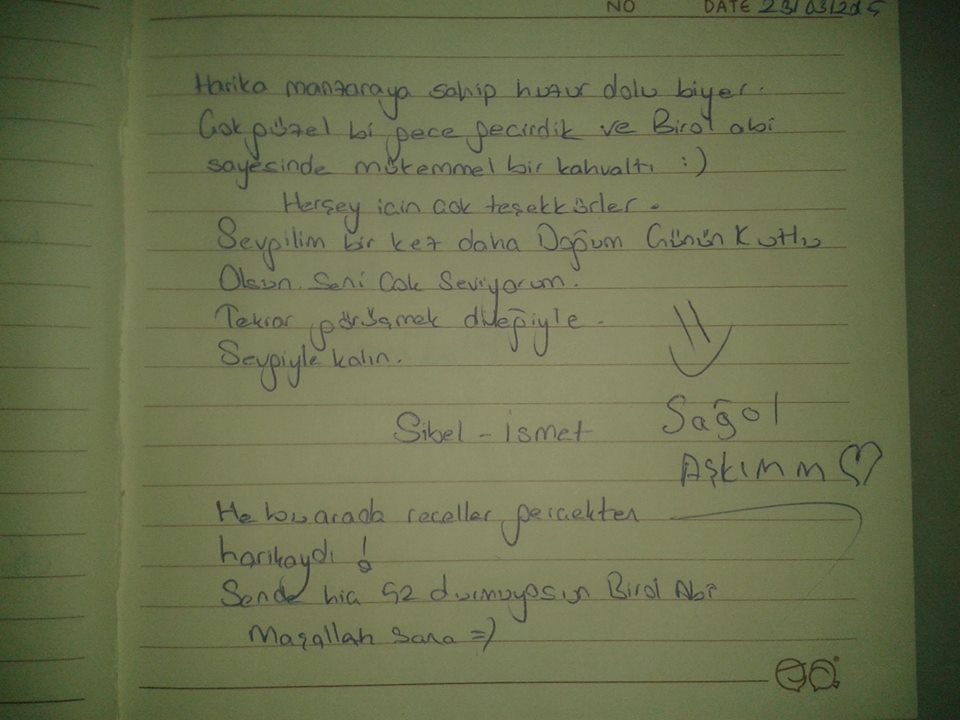 NO DATE 23/03/2015
Harika manzaraya sahip huzur dolu biyer.
Çok güzel bi gece geçirdik ve Birol abi
sayesinde mükemmel bir kahvaltı :)
Herşey için çok teşekkürler.
Sevgilim bir kez daha Doğum Günün Kutlu
Olsun. Seni Çok Seviyorum.
Tekrar görüşmek dileğiyle.
Sevgiyle kalın.
Sibel - İsmet
Sağol
Aşkımm ♡
He bu arada reçeller gerçekten
harikaydı !
Sende hiç 52 durmuyosun Birol Abi
Maşallah sana =)